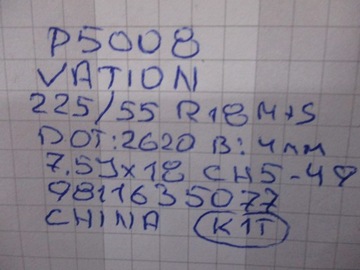 P5008
VATION
225/55 R18 M+S
DOT:2620 B:4мм
7.5J×18 CH5-48
9811635077
CHINA K1T